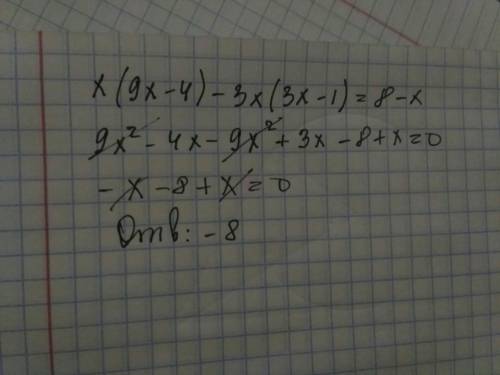 x(9x-4)-3x(3x-1)=8-x
9x²-4x-9x²+3x-8+x=0
-x-8+x=0
Отв: -8